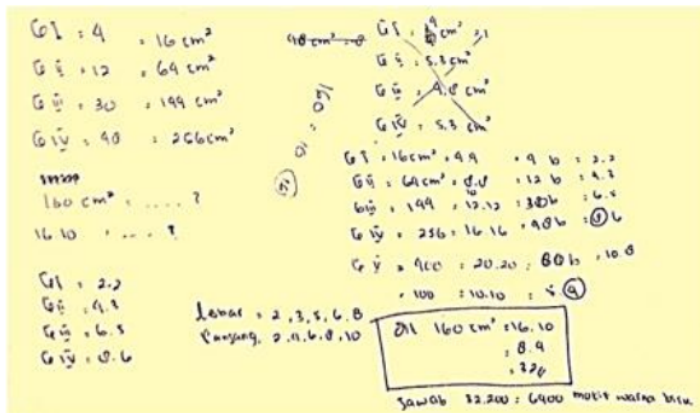 GI : 4 = 16 cm²
G ii : 12 = 64 cm²
G iii : 30 = 144 cm²
G iv : 48 = 256 cm²
160 cm² = .... ?
16.10 = .... ?
GI = 2.2
G ii = 4.3
G iii = 6.5
G iv = 8.6
48 cm² = 8
GI : cm²
G ii : 5.3 cm²
G iii : 4.8 cm²
G iv : 5.3 cm²
GI = 16 cm² = 4.4 = 4 b = 2.2
G ii = 64 cm² = 8.8 = 12 b = 4.3
G iii = 144 = 12.12 = 30 b = 6.5
G iv = 256 = 16.16 = 48 b = 8 6
G v = 400 = 20.20 = 80 b = 10.8
= 100 = 10.10 = 5.4
Lebar = 2, 3, 5, 6, 8
Panjang, 2, 4, 6, 8, 10
160 cm² = 16.10
= 8.4
= 32b
Jawab 32.200 = 6400 motif warna biru